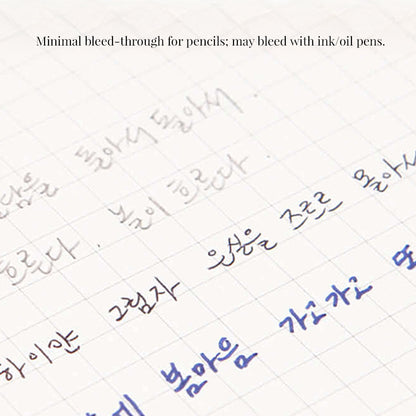 Minimal bleed-through for pencils; may bleed with ink/oil pens.
담을 돌아서 돌아서
흐른다. 놀이 흐른다.
하이얀 그림자 은실을 즈르르 몰아서
봄마음 가고가고 또